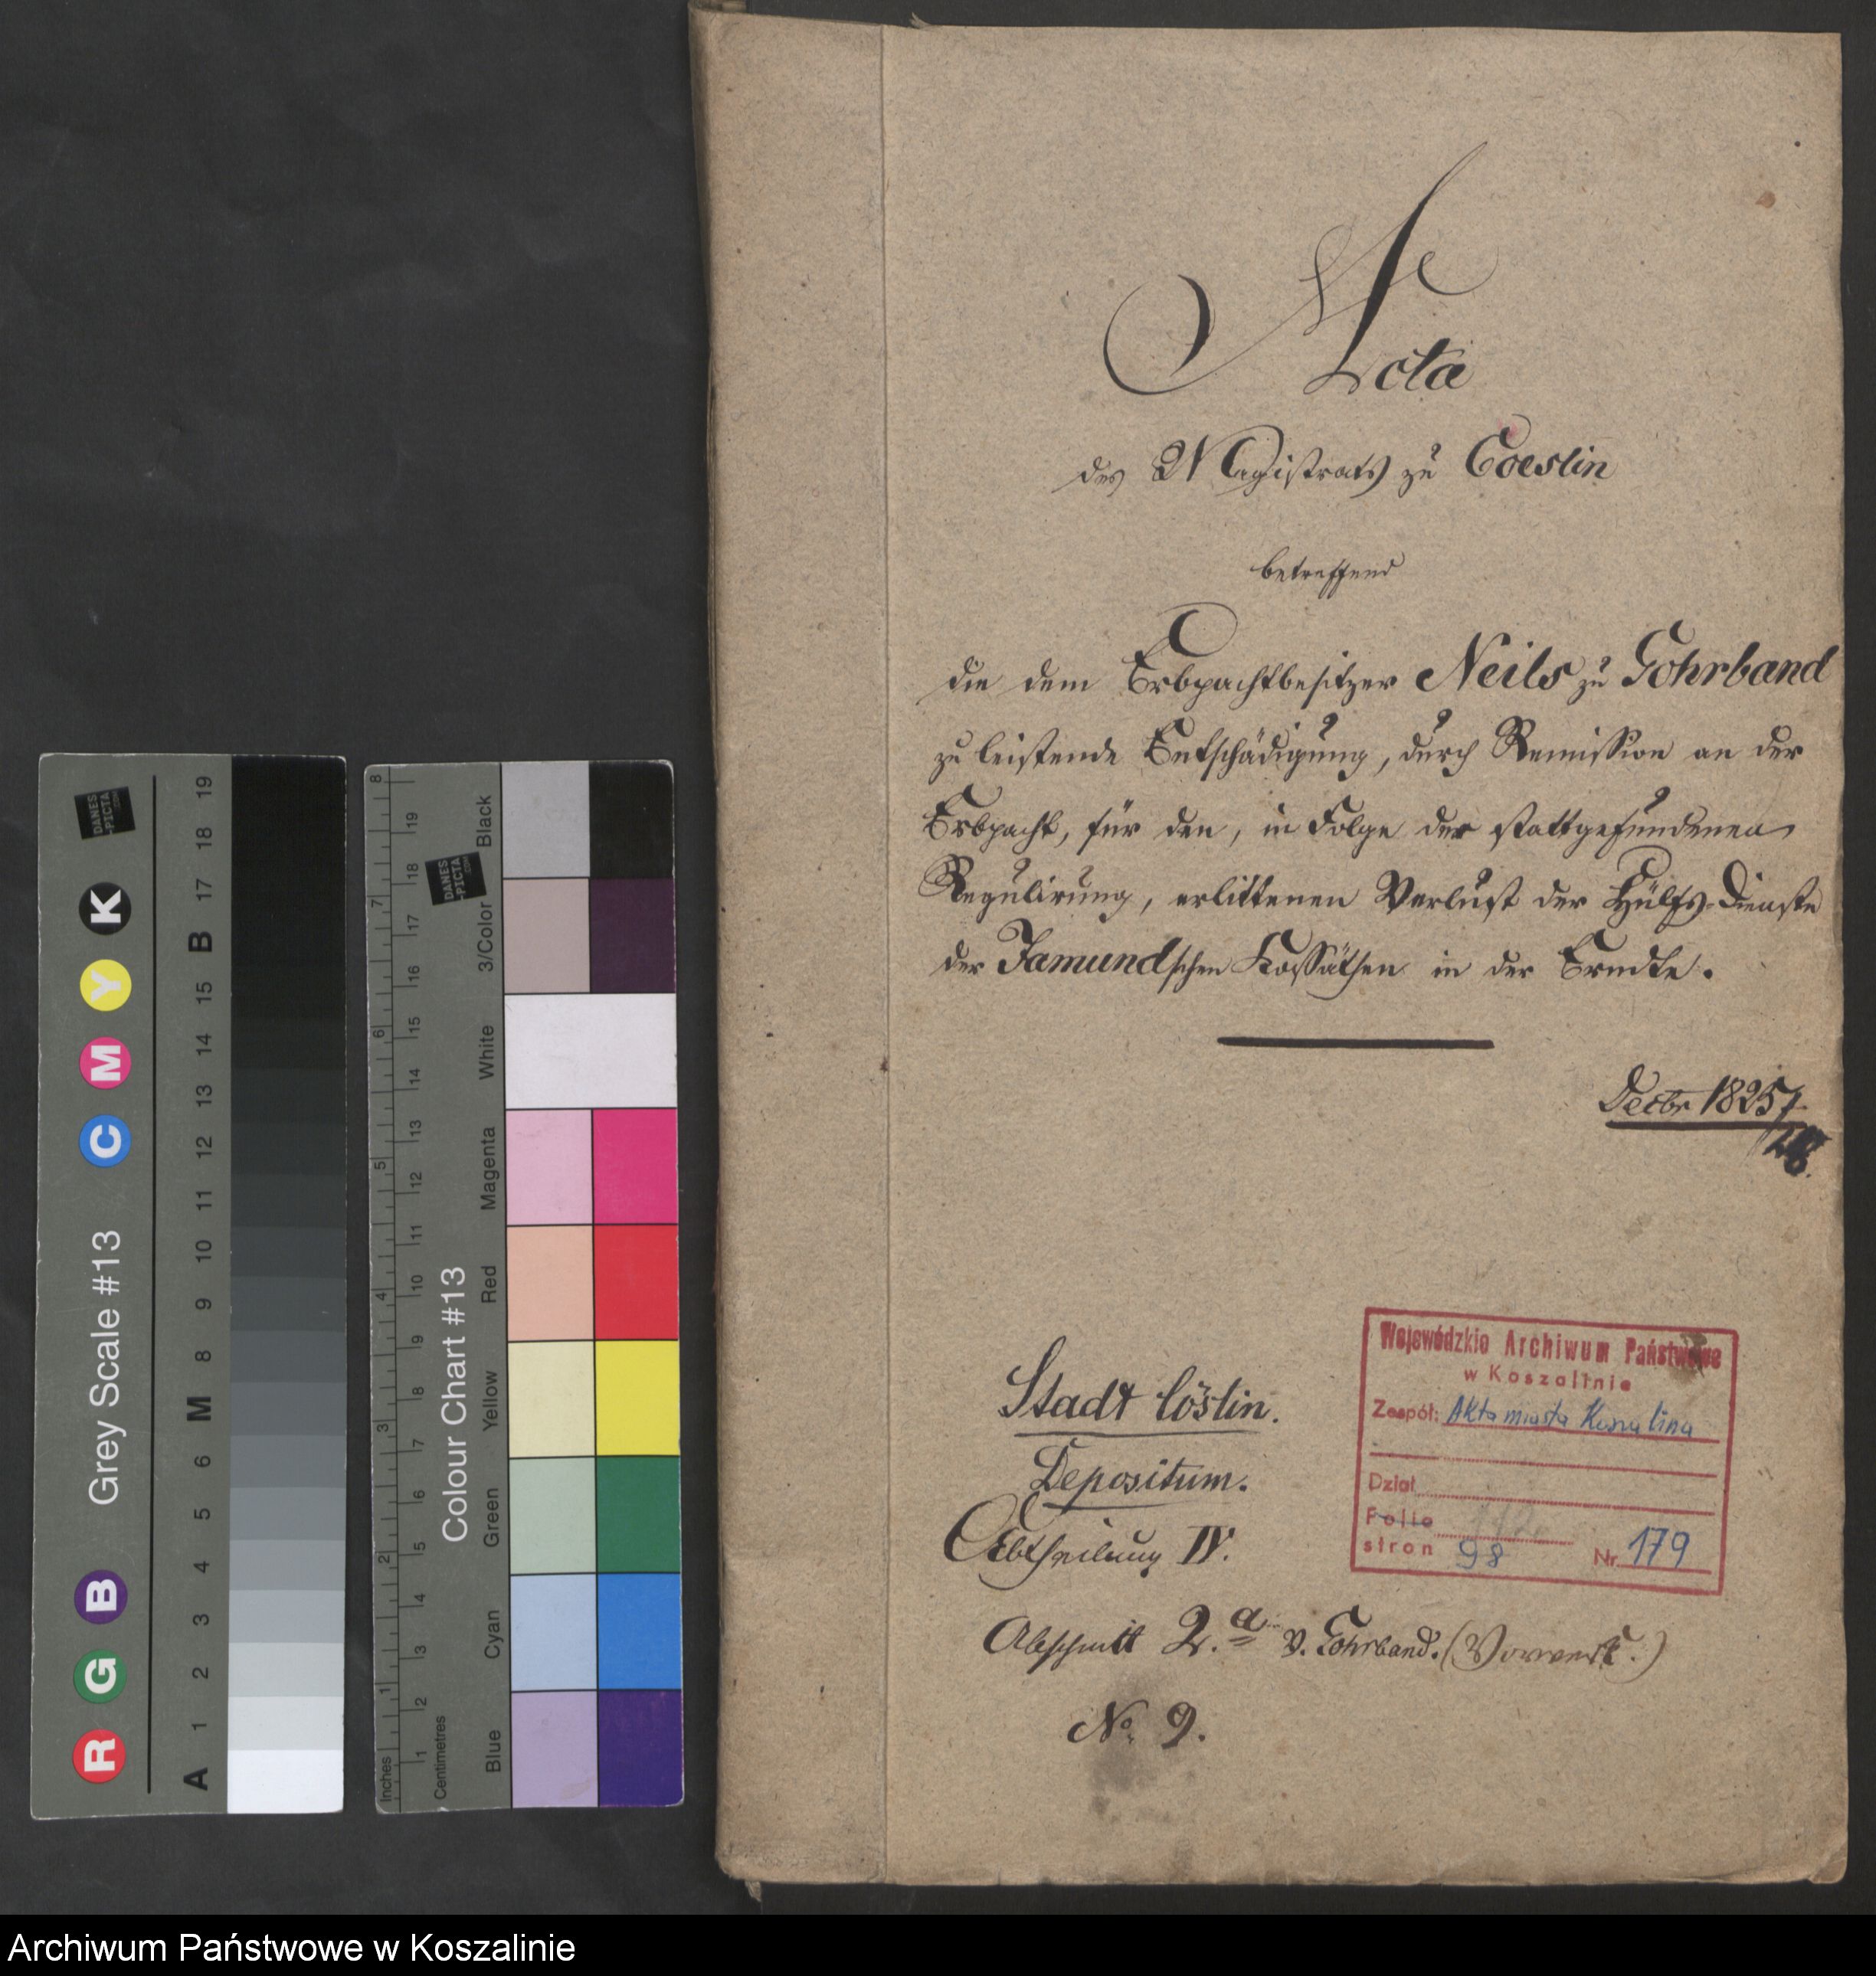 Acta
des Magistrats zu Coeslin
betreffend
die dem Erbpachtbesitzer Neils zu Gohrband
zu leistende Entschädigung, durch Remission an der
Erbpacht, für den, in Folge der stattgefundenen
Regulirung, erlittenen Verlust der Hülfs-Dienste
der Jamundschen Kossäthen in der Erndte.
Decbr 1825/
28.
Stadt Cöslin.
Depositum.
Abtheilung IV.
Abschnitt 2.a v. Gohrband. (Vorwerk.)
No. 9.
Wojewódzkie Archiwum Państwowe
w Koszalinie
Zespół: Akta miasta Koszalina
Dział
Folio 112
stron 98 Nr 179
Grey Scale #13
R G B C M Y K
A 1 2 3 4 5 6 M 8 9 10 11 12 13 14 15 B 17 18 19
DANES
-PICTA
.COM
Colour Chart #13
Blue Cyan Green Yellow Red Magenta White 3/Color Black
Inches 1 2 3 4 5 6 7 8
Centimetres 1 2 3 4 5 6 7 8 9 10 11 12 13 14 15 16 17 18 19
DANES
-PICTA
.COM
Archiwum Państwowe w Koszalinie